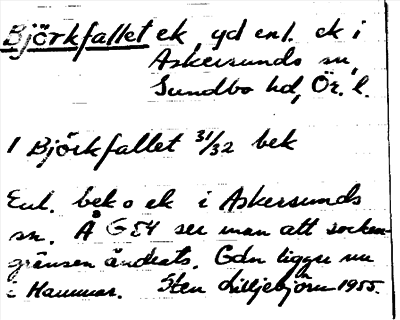 Björkfallet ek, yd enl. ek i
Askersunds sn,
Sundbo hd, Ör. l.
1 Björkfallet 31/32 bek
Enl. bek o ek i Askersunds
sn. Å GEK ser man att socken-
gränsen ändrats. Gdn ligger nu
i Hammar. Sten Liljebjörn 1955.